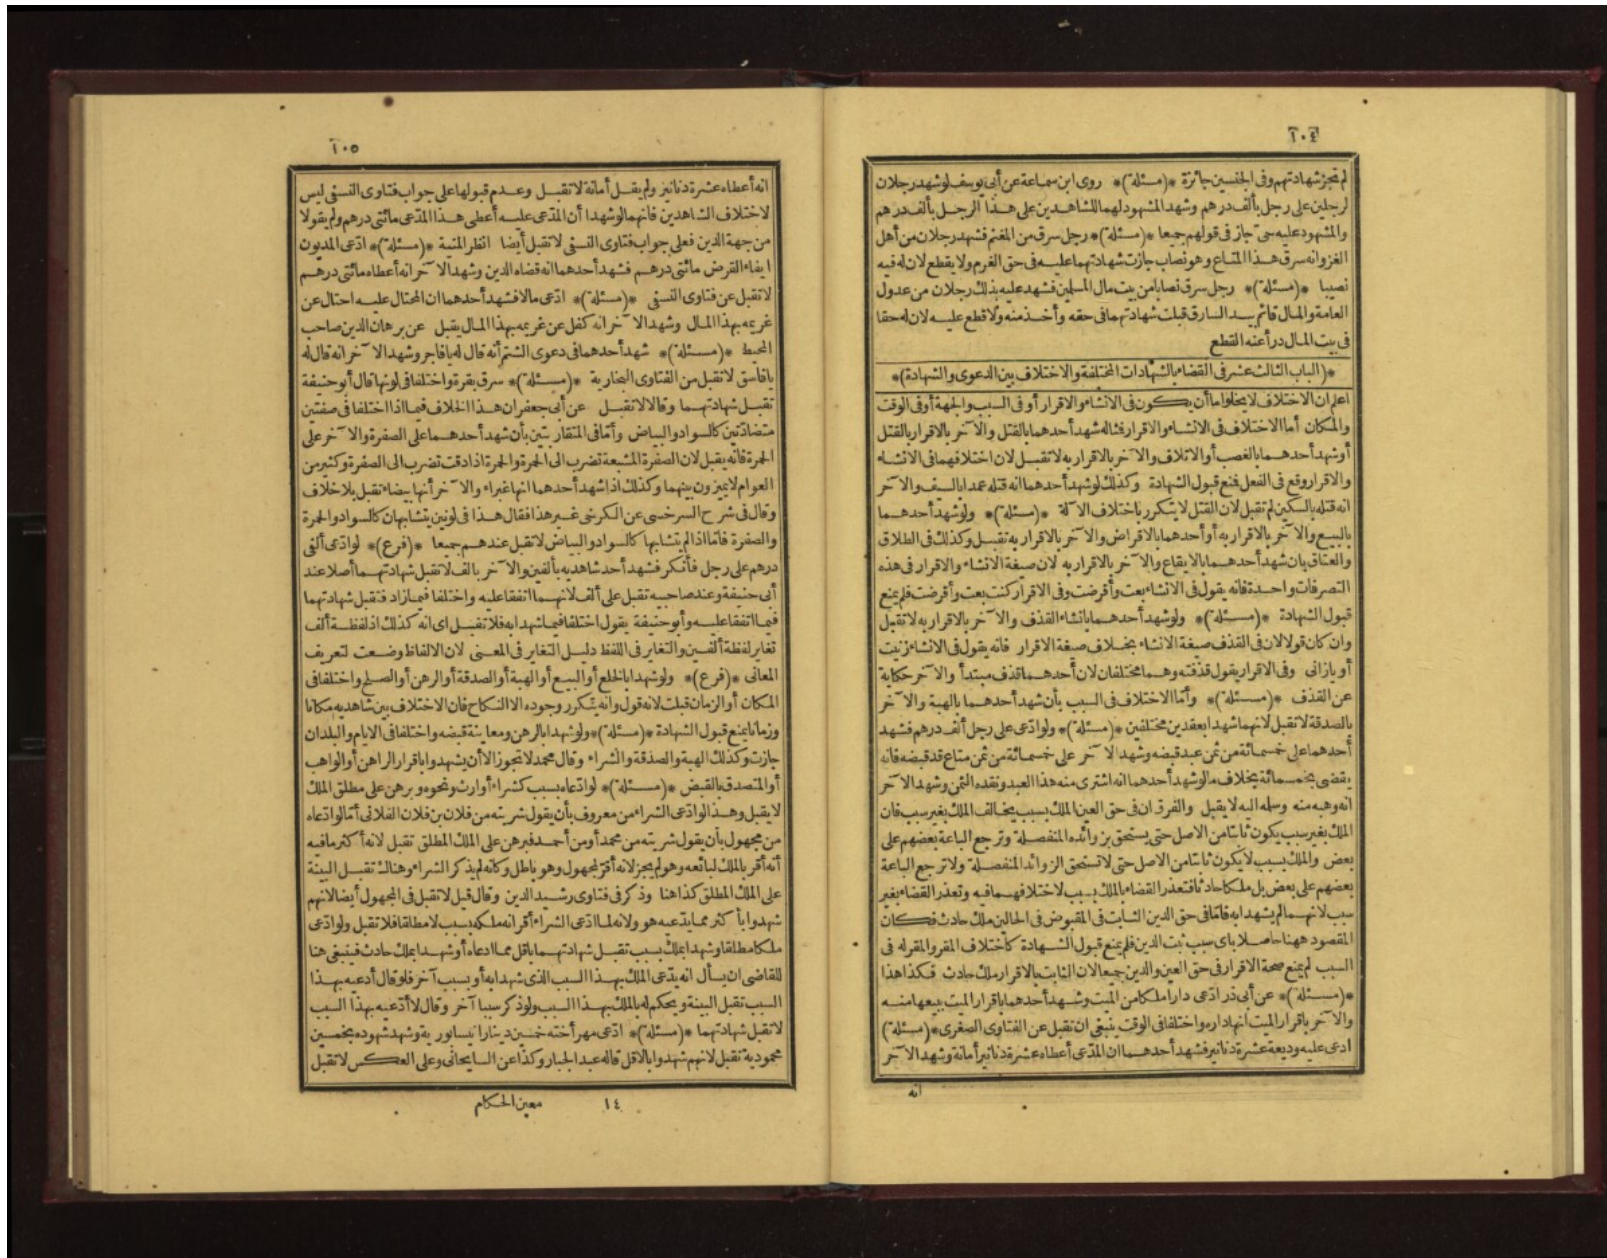 ١٠٤
لم تجز شهادتهم وفى الجنسين جائزة *(مسئلة)* روى ابن سماعة عن أبى يوسف لو شهد رجلان
لرجلين على رجل بألف درهم وشهد المشهود لهما للشاهدين على هذا الرجل بألف درهم
والمشهود عليه حىّ جاز فى قولهم جميعا *(مسئلة)* رجل سرق من المغنم فشهد رجلان من أهل
الغزوانه سرق هذا المتاع وهو نصاب جازت شهادتهما عليه فى حق الغرم ولا يقطع لان له فيه
نصيبا *(مسئلة)* رجل سرق نصابا من بيت مال المسلمين فشهد عليه بذلك رجلان من عدول
العامة والمال قائم بيد السارق قبلت شهادتهما فى حقه وأخذ منه ولا قطع عليه لان له حقا
فى بيت المال درأ عنه القطع
*(الباب الثالث عشر فى القضاء بالشهادات المختلفة والاختلاف بين الدعوى والشهادة)*
اعلم ان الاختلاف لا يخلو اما أن يكون فى الانشاء والاقرار أو فى السبب والجهة أو فى الوقت
والمكان أما الاختلاف فى الانشاء والاقرار فمثاله شهد أحدهما بالقتل والآخر بالاقرار بالقتل
أو شهد أحدهما بالغصب أو الاتلاف والآخر بالاقرار به لا تقبل لان اختلافهما فى الانشاء
والاقرار وقع فى الفعل فمنع قبول الشهادة وكذلك لو شهد أحدهما انه قتله عمدا بالسيف والآخر
انه قتله بالسكين لم تقبل لان القتل لا يتكرر باختلاف الآلة *(مسئلة)* ولو شهد أحدهما
بالبيع والآخر بالاقرار به أو أحدهما بالاقراض والآخر بالاقرار به تقبل وكذلك فى الطلاق
والعتاق بان شهد أحدهما بالايقاع والآخر بالاقرار به لان صيغة الانشاء والاقرار فى هذه
التصرفات واحدة فانه يقول فى الانشاء بعت وأقرضت وفى الاقرار كنت بعت وأقرضت فلم يمنع
قبول الشهادة *(مسئلة)* ولو شهد أحدهما بانشاء القذف والآخر بالاقرار به لا تقبل
وان كان قولا لان فى القذف صيغة الانشاء بخلاف صيغة الاقرار فانه يقول فى الانشاء زنيت
أو يازانى وفى الاقرار يقول قذفته وهما مختلفان لان أحدهما قذف مبتدأ والآخر حكاية
عن القذف *(مسئلة)* وأما الاختلاف فى السبب بأن شهد أحدهما بالهبة والآخر
بالصدقة لا تقبل لانهما شهدا بعقدين مختلفين *(مسئلة)* ولو ادّعى على رجل ألف درهم فشهد
أحدهما على خمسمائة من ثمن عبد قبضه وشهد الآخر على خمسمائة من ثمن متاع قد قبضه فانه
يقضى بخمسمائة بخلاف مالو شهد أحدهما انه اشترى منه هذا العبد ونقده الثمن وشهد الآخر
انه وهبه منه وسلمه اليه لا يقبل والفرق ان فى حق العين الملك بسبب يخالف الملك بغير سبب فان
الملك بغير سبب يكون ثابتا من الاصل حتى يستحق بزوائده المنفصلة وترجع الباعة بعضهم على
بعض والملك بسبب لا يكون ثابتا من الاصل حتى لا تستحق الزوائد المنفصلة ولا ترجع الباعة
بعضهم على بعض بل ملكا حادثا فتعذر القضاء بالملك بسبب لاختلافهما فيه وتعذر القضاء بغير
سبب لانهما لم يشهدا به فاما فى حق الدين الثابت فى المقبوض فى الحالين ملك حادث فكان
المقصود ههنا حاصلا باى سبب ثبت الدين فلم يمنع قبول الشهادة كاختلاف المقر والمقر له فى
السبب لم يمنع صحة الاقرار فى حق العين والدين جميعا لان الثابت بالاقرار ملك حادث فكذا هذا
*(مسئلة)* عن أبى ذر ادّعى دارا ملكا من الميت وشهد أحدهما باقرار الميت ببيعها منه
والآخر باقرار الميت انها داره واختلفا فى الوقت ينبغى ان تقبل عن الفتاوى الصغرى *(مسئلة)
ادعى عليه وديعة عشرة دنانير فشهد أحدهما ان المدّعى أعطاه عشرة دنانير أمانة وشهد الآخر
انه
١٠٥
انه أعطاه عشرة دنانيز ولم يقل أمانة لا تقبل وعدم قبولها على جواب فتاوى النسفى ليس
لاختلاف الشاهدين فانهما لو شهدا أن المدّعى عليه أعطى هذا المدّعى مائتى درهم ولم يقولا
من جهة الدين فعلى جواب فتاوى النسفى لا تقبل أيضا انظر المنية *(مسئلة)* ادّعى المديون
ايفاء القرض مائتى درهم فشهد أحدهما انه قضاه الدين وشهد الآخر انه أعطاه مائتى درهم
لا تقبل عن فتاوى النسفى *(مسئلة)* ادّعى مالا فشهد أحدهما ان المحتال عليه احتال عن
غريمه بهذا المال وشهد الآخر انه كفل عن غريمه بهذا المال يقبل عن برهان الدين صاحب
المحيط *(مسئلة)* شهد أحدهما فى دعوى الشتم أنه قال له يا فاجر وشهد الآخر انه قال له
يا فاسق لا تقبل من الفتاوى البخارية *(مسئلة)* سرق بقرة واختلفا فى لونها قال أبو حنيفة
تقبل شهادتهما وقالا لا تقبل عن أبى جعفر ان هذا الخلاف فيما اذا اختلفا فى صفتين
متضادّتين كالسواد والبياض وأمّا فى المتقاربتين بأن شهد أحدهما على الصفرة والآخر على
الحمرة فانّه يقبل لان الصفرة المشبعة تضرب الى الحمرة والحمرة اذا دقت تضرب الى الصفرة وكثير من
العوام لا يميزون بينهما وكذلك اذا شهد أحدهما انها غبراء والآخر أنها بيضاء تقبل بلا خلاف
وقال فى شرح السرخسى عن الكرخى غير هذا فقال هذا فى لونين يتشابهان كالسواد والحمرة
والصفرة فامّا اذا لم يتشابها كالسواد والبياض لا تقبل عندهم جميعا *(فرع)* لو ادّعى ألفى
درهم على رجل فأنكر فشهد أحد شاهديه بألفين والآخر بالف لا تقبل شهادتهما أصلا عند
أبى حنيفة وعند صاحبيه تقبل على ألف لانهما اتفقا عليه واختلفا فيما زاد فتقبل شهادتهما
فيما اتفقا عليه وأبو حنيفة يقول اختلفا فيما شهدا به فلا تقبل اى انه كذلك اذ لفظة ألف
تغاير لفظة ألفين والتغاير فى اللفظ دليل التغاير فى المعنى لان الالفاظ وضعت لتعريف
المعانى *(فرع)* ولو شهدا بالخلع أو البيع أو الهبة أو الصدقة أو الرهن أو الصلح واختلفا فى
المكان أو الزمان قبلت لانه قول وانه يتكرر وجوده الا النكاح فان الاختلاف بين شاهديه مكانا
وزمانا يمنع قبول الشهادة *(مسئلة)* ولو شهدا بالرهن ومعاينة قبضه واختلفا فى الايام والبلدان
جازت وكذلك الهبة والصدقة والشراء وقال محمد لا تجوز الا أن يشهدوا باقرار الراهن أو الواهب
أو المتصدق بالقبض *(مسئلة)* لو ادّعاه بسبب كشراء أو ارث ونحوه وبرهن على مطلق الملك
لا يقبل وهذا لو ادّعى الشراء من معروف بأن يقول شريته من فلان بن فلان الفلانى أمّا لو ادّعاه
من مجهول بأن يقول شريته من محمد أو من أحمد فبرهن على الملك المطلق تقبل لانه أكثر ما فيه
أنه أقر بالملك لبائعه وهو لم يجز لانه أقر لمجهول وهو باطل وكأنه لم يذكر الشراء وهنالك تقبل البينة
على الملك المطلق كذا هنا وذكر فى فتاوى رشيد الدين وقال قيل لا تقبل فى المجهول أيضا لانهم
شهدوا بأكثر مما يدّعيه هو ولانه لما ادّعى الشراء أقر انه ملكه بسبب لا مطلقا فلا تقبل ولو ادّعى
ملكا مطلقا وشهدا بملك بسبب تقبل شهادتهما باقل مما ادعاه أو شهدا بملك حادث فينبغى هنا
للقاضى ان يسأل انه يدّعى الملك بهذا السبب الذى شهدا به أو بسبب آخر فلو قال أدعيه بهذا
السبب تقبل البينة ويحكم له بالملك بهذا السبب ولو ذكر سببا آخر وقال لا أدّعيه بهذا السبب
لا تقبل شهادتهما *(مسئلة)* ادّعى مهر أخته خمسين دينارا نيسابورية وشهد شهوده بخمسين
محمودية تقبل لانهم شهدوا بالاقل قاله عبد الجبار وكذا عن السايحانى وعلى العكس لا تقبل
١٤ معين الحكام